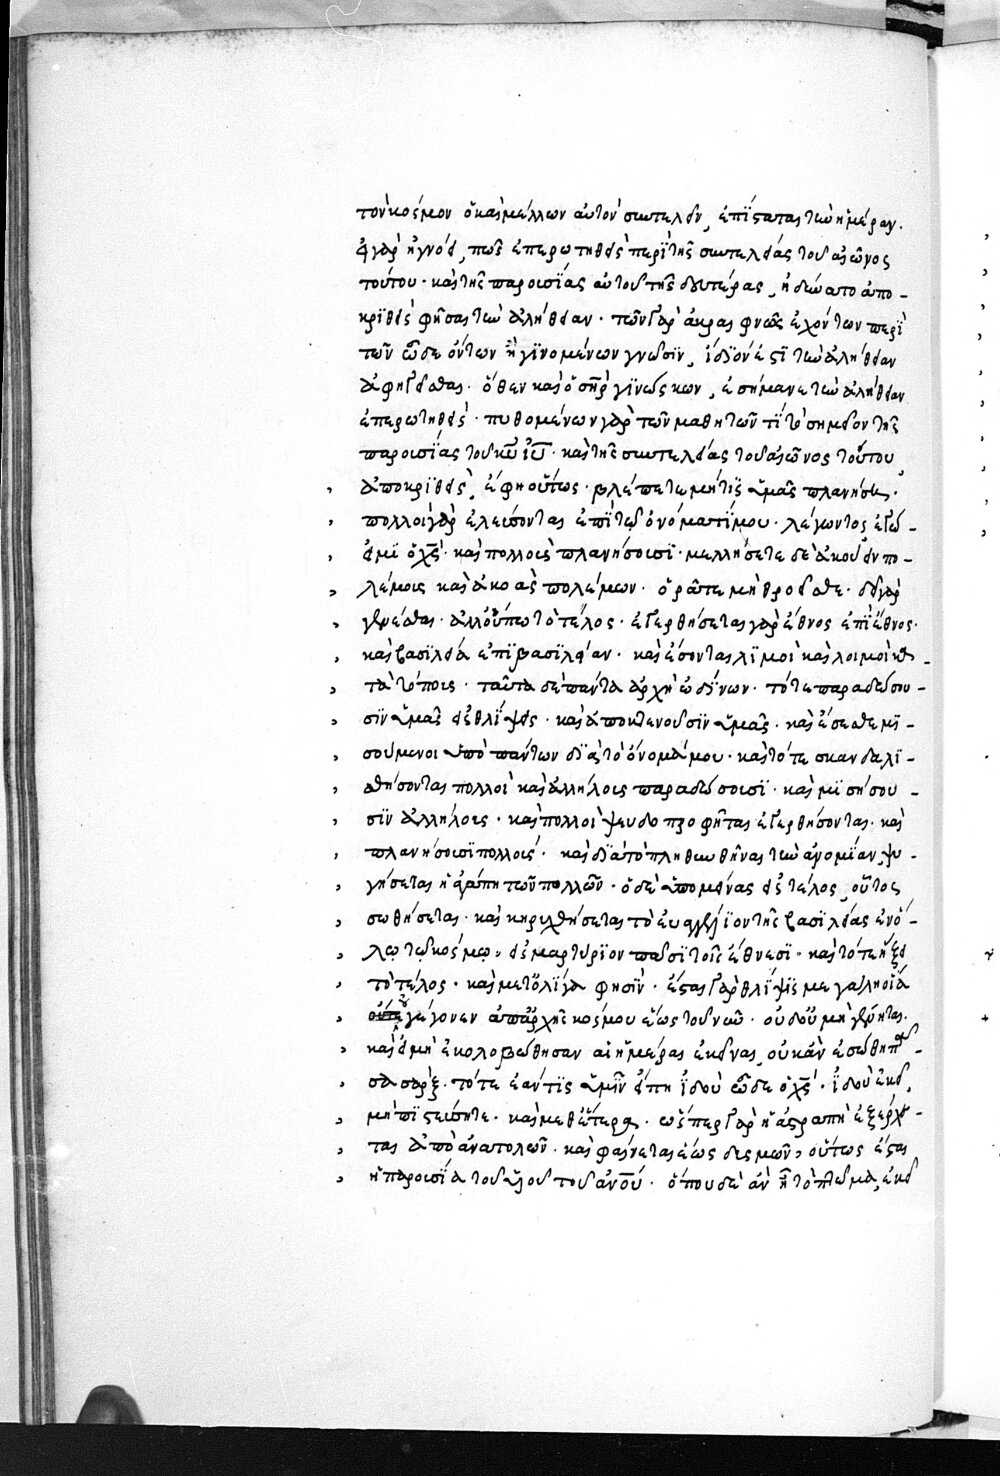 τὸν κόσμον ὁ καὶ μέλλων αὐτὸν συντελεῖν, ἐπίσταται τὴν ἡμέραν.
εἰ γὰρ ἠγνόει, πῶς ἐπερωτηθεὶς περὶ τῆς συντελείας τοῦ αἰῶνος
τούτου· καὶ τῆς παρουσίας αὐτοῦ τῆς δευτέρας, ἠδύνατο ἀπο-
κριθεὶς φῆσαι τὴν ἀλήθειαν· τῶν γὰρ ἀκραιφνῶς ἐχόντων περὶ
τῶν ὧδε ὄντων ἢ γινομένων γνῶσιν, ἴδιόν ἐστι τὴν ἀλήθειαν
ἀφηγεῖσθαι· ὅθεν καὶ ὁ σηρ γινώσκων, ἐσήμανε τὴν ἀλήθειαν
ἐπερωτηθείς· πυθομένων γὰρ τῶν μαθητῶν τί τὸ σημεῖον τῆς
παρουσίας τοῦ κυ ιυ· καὶ τῆς συντελείας τοῦ αἰῶνος τούτου,
ἀποκριθεὶς, ἔφη οὕτως· βλέπετε μή τις ὑμᾶς πλανήσει·
πολλοὶ γὰρ ἐλεύσονται ἐπὶ τῷ ὀνόματί μου· λέγοντες ἐγώ
εἰμι ὁ χς· καὶ πολλοὺς πλανήσουσι· μελλήσετε δὲ ἀκούειν πο-
λέμους καὶ ἀκοὰς πολέμων· ὁρᾶτε μὴ θροεῖσθε· δεῖ γὰρ
γενέσθαι· ἀλλ' οὔπω τὸ τέλος· ἐγερθήσεται γὰρ ἔθνος ἐπὶ ἔθνος·
καὶ βασιλεία ἐπὶ βασιλείαν· καὶ ἔσονται λιμοὶ καὶ λοιμοὶ κα-
τὰ τόπους· ταῦτα δὲ πάντα ἀρχὴ ὠδίνων· τότε παραδώσου-
σιν ὑμᾶς εἰς θλίψεις· καὶ ἀποκτενοῦσιν ὑμᾶς· καὶ ἔσεσθε μι-
σούμενοι ὑπὸ πάντων διὰ τὸ ὄνομά μου· καὶ τότε σκανδαλι-
σθήσονται πολλοὶ καὶ ἀλλήλους παραδώσουσι· καὶ μισήσου-
σιν ἀλλήλους· καὶ πολλοὶ ψευδοπροφῆται ἐγερθήσονται· καὶ
πλανήσουσι πολλούς· καὶ διὰ τὸ πληθυνθῆναι τὴν ἀνομίαν, ψυ-
γήσεται ἡ ἀγάπη τῶν πολλῶν· ὁ δὲ ὑπομείνας εἰς τέλος, οὗτος
σωθήσεται· καὶ κηρυχθήσεται τὸ εὐαγγέλιον τῆς βασιλείας ἐν ὅ-
λῳ τῷ κόσμῳ, εἰς μαρτύριον πᾶσι τοῖς ἔθνεσι· καὶ τότε ἥξει
τὸ τέλος· καὶ μετ' ὀλίγα φησίν· ἔσται γὰρ θλίψις μεγάλη οἵα
οὐ γέγονεν ἀπ' ἀρχῆς κόσμου ἕως τοῦ νῦν· οὐδ' οὐ μὴ γένηται.
καὶ εἰ μὴ ἐκολοβώθησαν αἱ ἡμέραι ἐκεῖναι, οὐκ ἂν ἐσώθη πᾶ-
σα σάρξ· τότε ἐάν τις ὑμῖν εἴπῃ ἰδοὺ ὧδε ὁ χς· ἰδοὺ ἐκεῖ,
μὴ πιστεύσητε· καὶ μεθ' ἕτερα· ὥσπερ γὰρ ἡ ἀστραπὴ ἐξέρχε-
ται ἀπὸ ἀνατολῶν· καὶ φαίνεται ἕως δυσμῶν, οὕτως ἔσται
ἡ παρουσία τοῦ υἱοῦ τοῦ ανου· ὅπου δ' ἐὰν ᾖ τὸ πτῶμα, ἐκεῖ